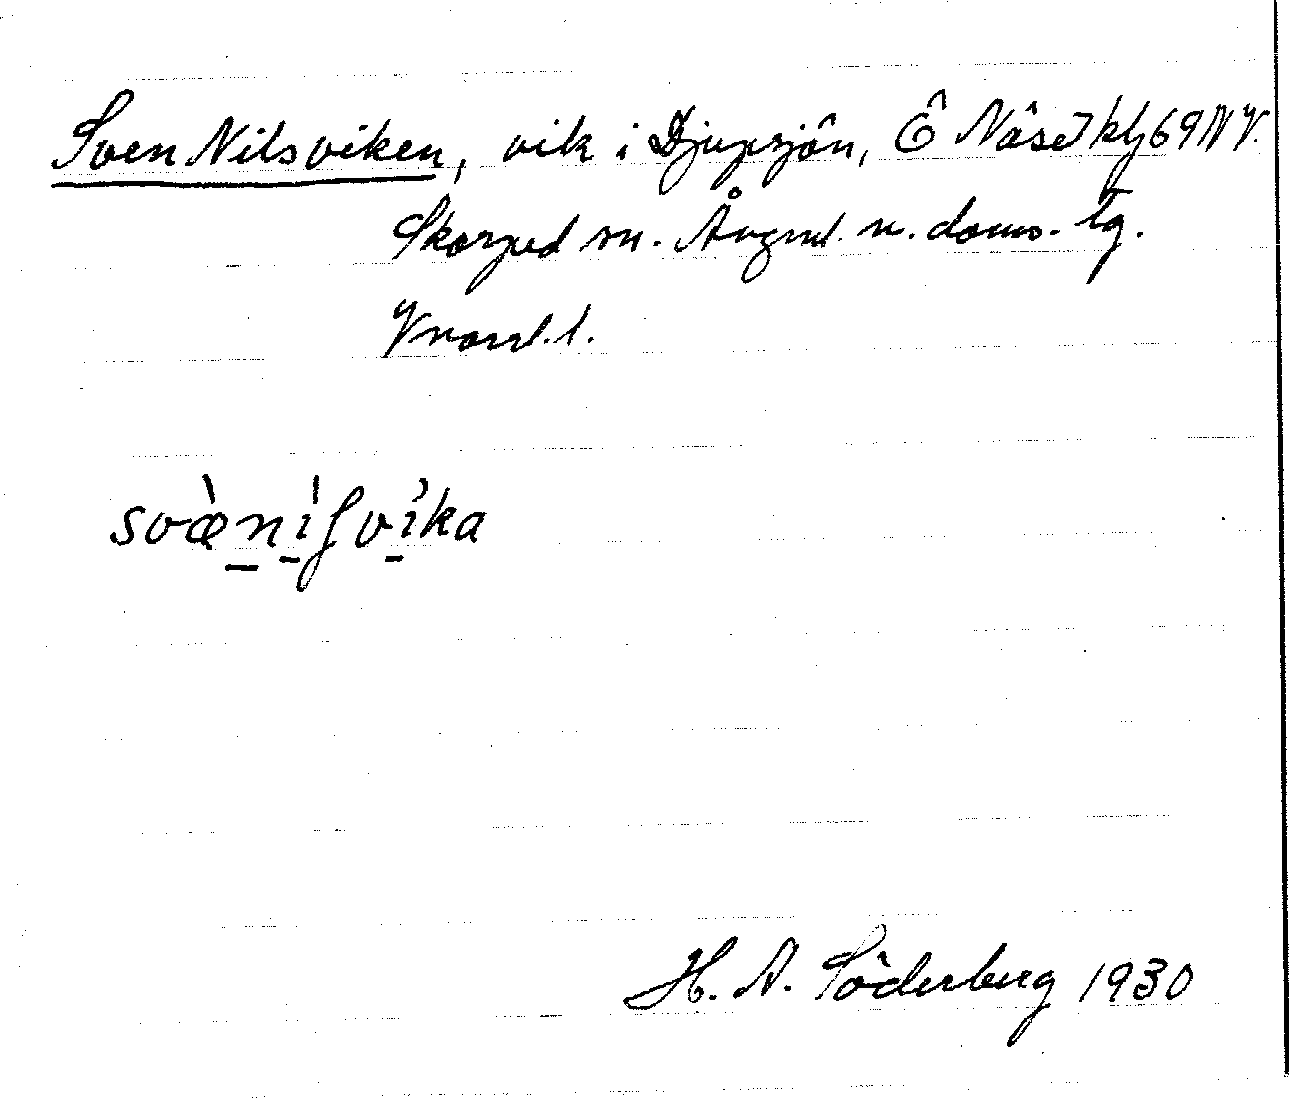 Sven Nilsviken, vik i Djupsjön, Ö Näset kbl 69 NV.
Skorped sn. Ångml. n. doms. tg.
Vnorrl. l.
svæ̀nı̍lʃvı̓ka
H. A. Söderberg 1930